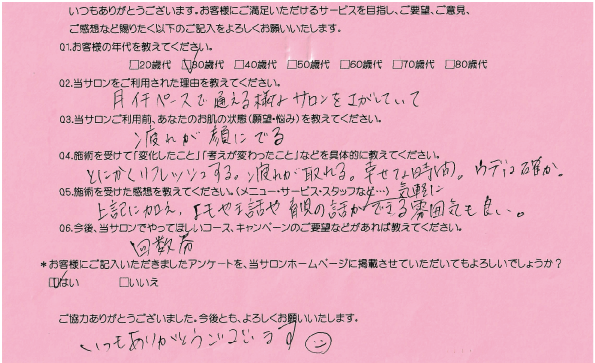 いつもありがとうございます。お客様にご満足いただけるサービスを目指し、ご要望、ご意見、
ご感想など賜りたく以下のご記入をよろしくお願いいたします。
Q1.お客様の年代を教えてください。
□20歳代 ☑30歳代 □40歳代 □50歳代 □60歳代 □70歳代 □80歳代
Q2.当サロンをご利用された理由を教えてください。
月イチペースで通える様なサロンをさがしていて
Q3.当サロンご利用前、あなたのお肌の状態(願望・悩み)を教えてください。
疲れが顔にでる
Q4.施術を受けて「変化したこと」「考えが変わったこと」などを具体的に教えてください。
とにかくリフレッシュする。疲れが取れる。幸せな時間。ウデは確か。
Q5.施術を受けた感想を教えてください。(メニュー・サービス・スタッフなど…)
気軽に
上記に加え、世話や の話ができる雰囲気も良い。
Q6.今後、当サロンでやってほしいコース、キャンペーンのご要望などがあれば教えてください。
回数券
*お客様にご記入いただきましたアンケートを、当サロンホームページに掲載させていただいてもよろしいでしょうか?
☑はい □いいえ
ご協力ありがとうございました。今後とも、よろしくお願いいたします。
いつもありがとうございます